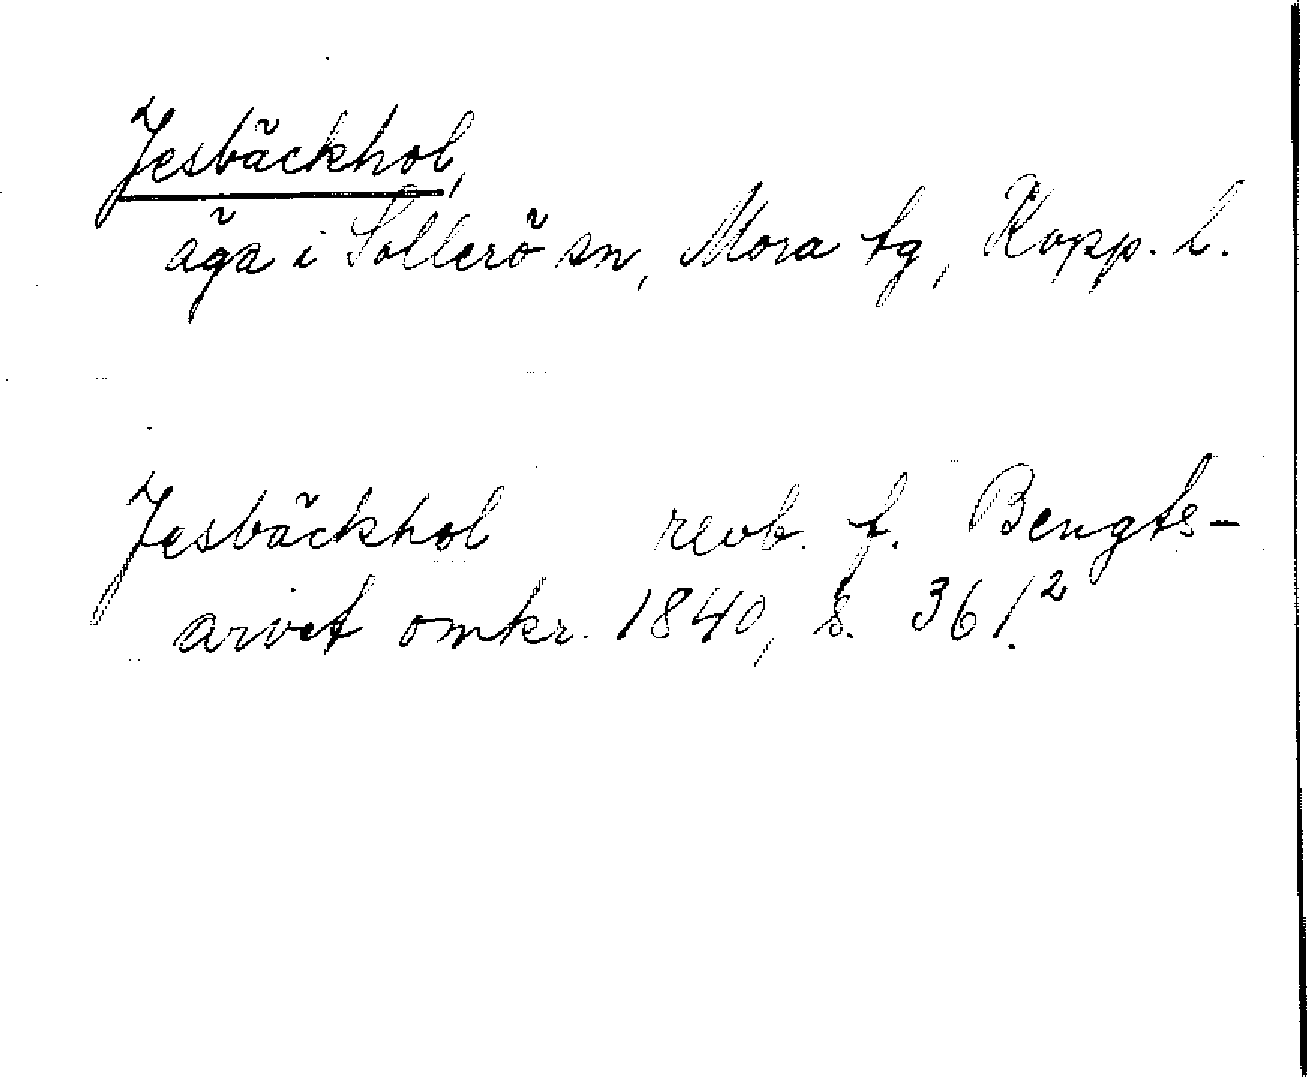 Jesbäckhol,
äga i Sollerö sn, Mora tg, Kopp. l.
Jesbäckhol revb. f. Bengts-
arvet omkr. 1840, s. 361².